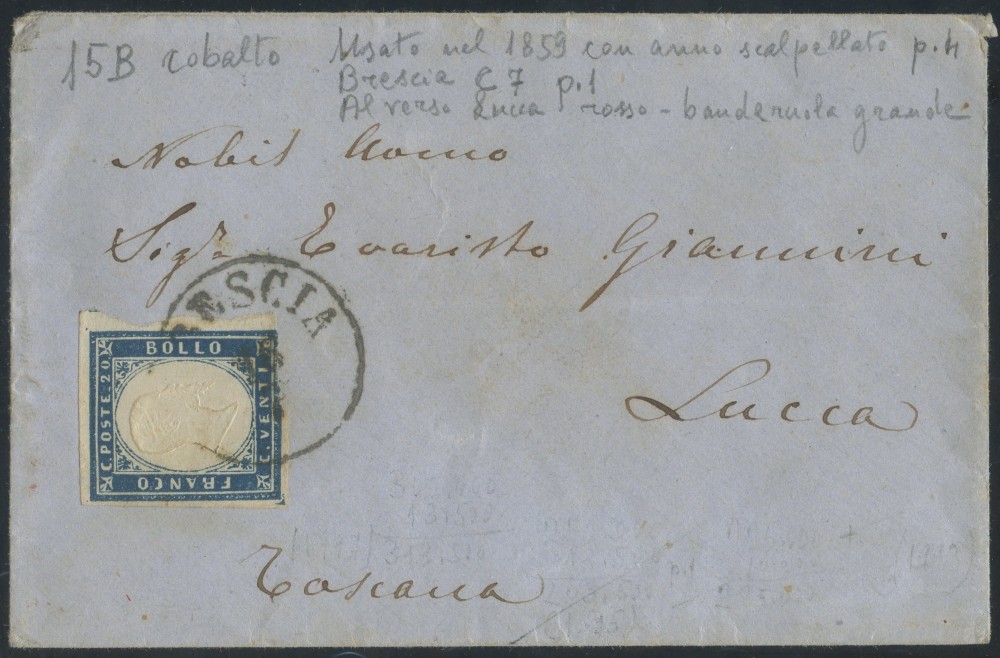 15B cobalto Usato nel 1859 con anno scalpellato p.4
Brescia C7 p.1
Al verso Lucca rosso - banderuola grande
Nobil Uomo
Sigr Evaristo Giannini
BRESCIA
BOLLO
C. POSTE. 20
C. VENTI
FRANCO
Lucca
313.500
p.1
Toscana